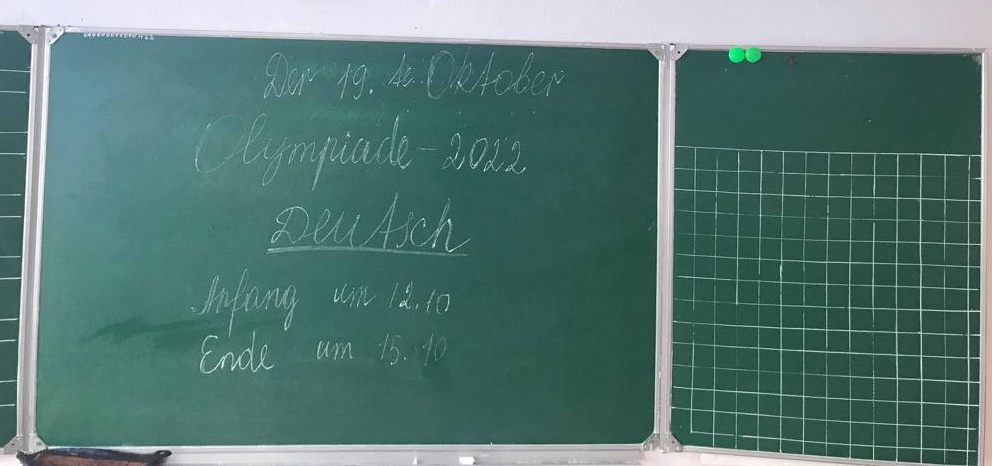 Der 19. te Oktober
Olympiade - 2022
Deutsch
Anfang um 12.10
Ende um 15.10